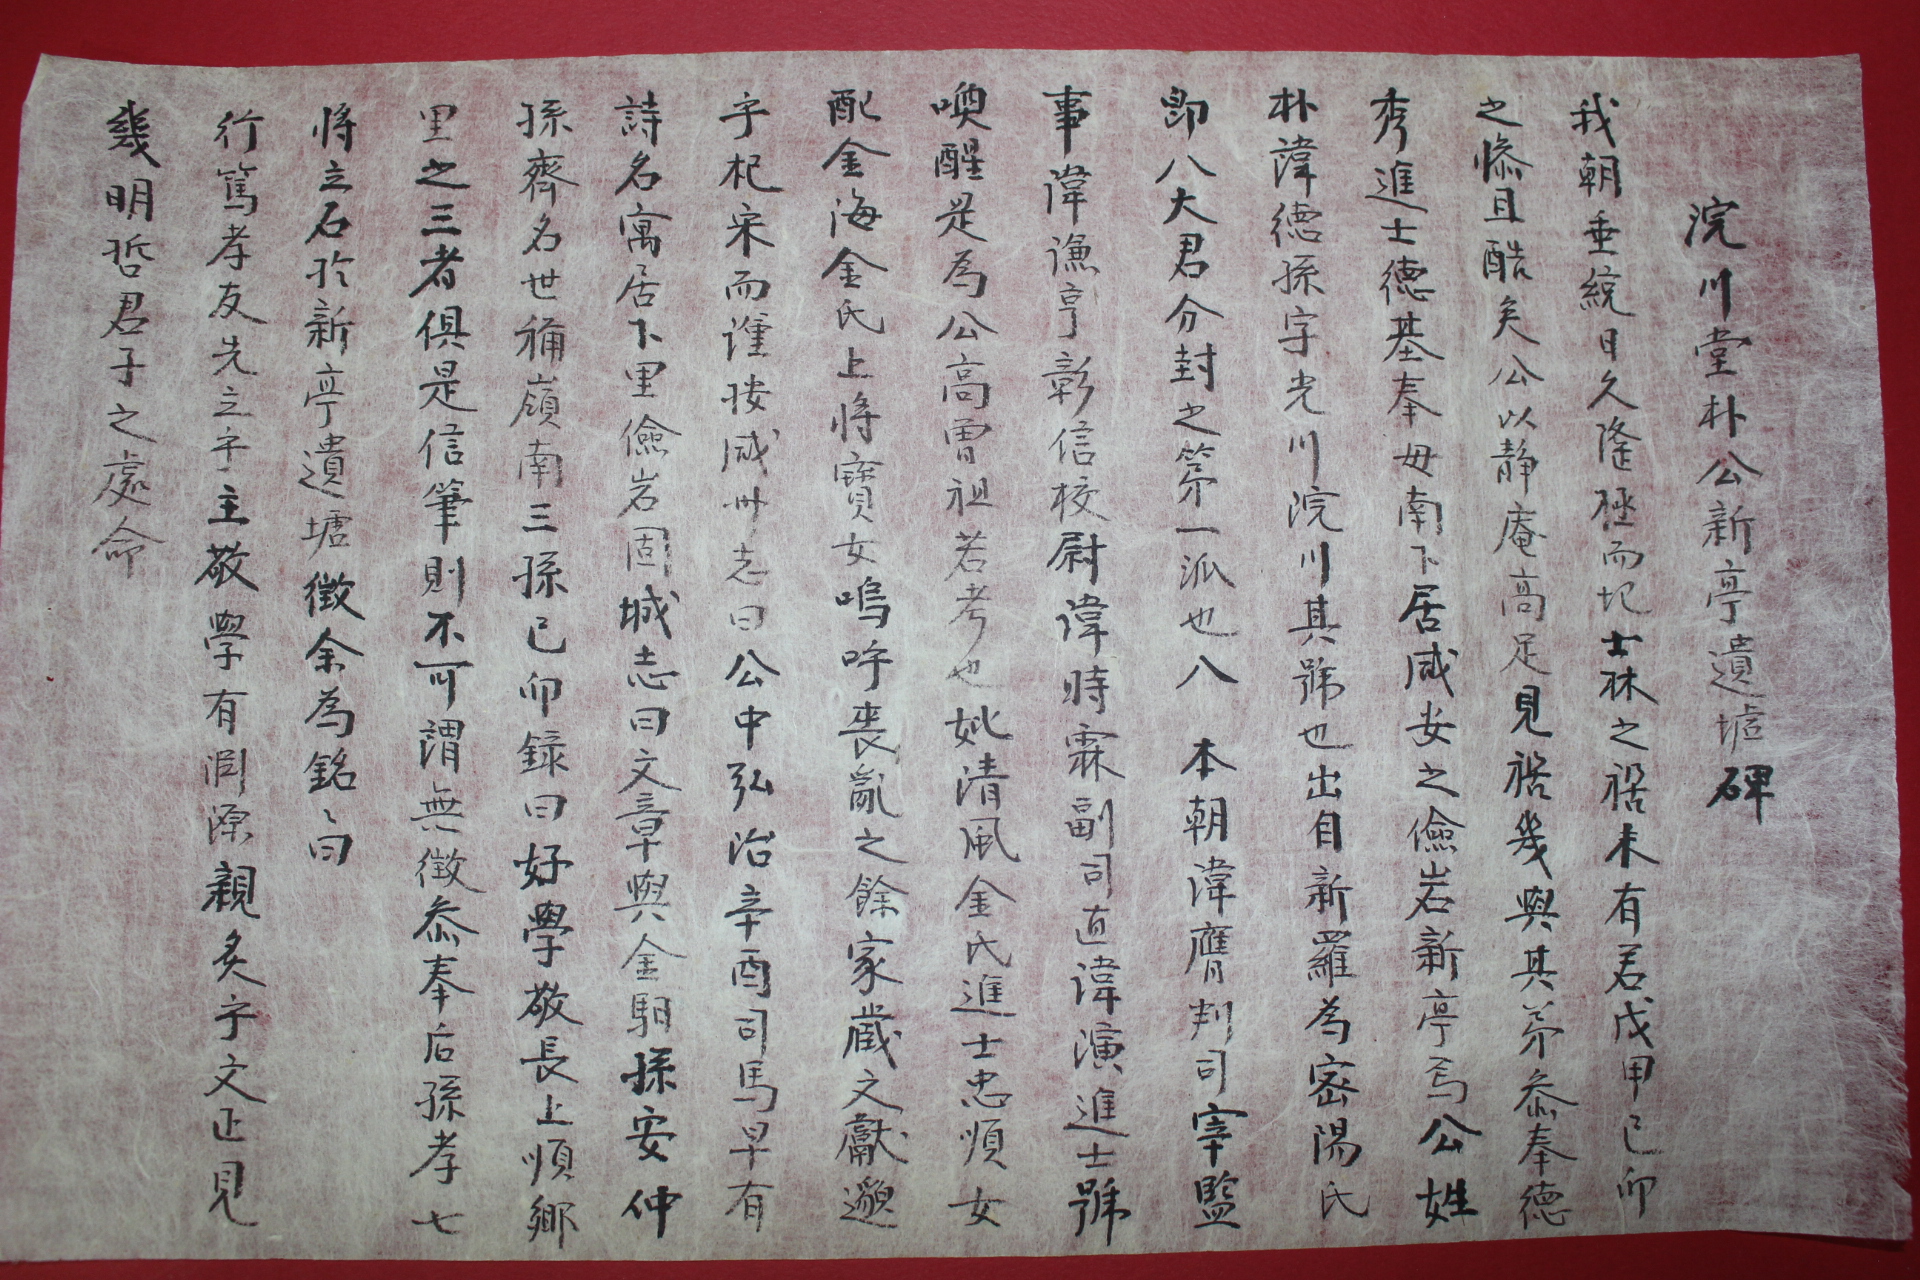 浣川堂朴公新亭遺墟碑
我朝垂統日久隆極而圮士林之禍未有若戊甲己卯
之慘且酷矣公以静庵高足見禍幾與其弟叅奉德
秀進士德基奉母南下居咸安之儉岩新亭焉公姓
朴諱德孫字光川浣川其號也出自新羅為密陽氏
即八大君分封之第一派也八 本朝諱膺判司宰監
事諱謙亨彰信校尉諱時霖副司直諱演進士號
喚醒是為公高曾祖若考也妣清風金氏進士忠順女
配金海金氏上將寶女嗚呼喪亂之餘家蔵文獻邈
乎杞宋而謹按咸州志曰公中弘治辛酉司馬早有
詩名寓居下里儉岩固城志曰文章與金馹孫安仲
孫齊名世稱嶺南三孫己卯錄曰好學敬長上順鄉
里之三者俱是信筆則不可謂無徵叅奉后孫孝七
將立石於新亭遺墟徵余為銘〻曰
行篤孝友先立乎主敬學有淵源親炙乎文正見
幾明哲君子之處命